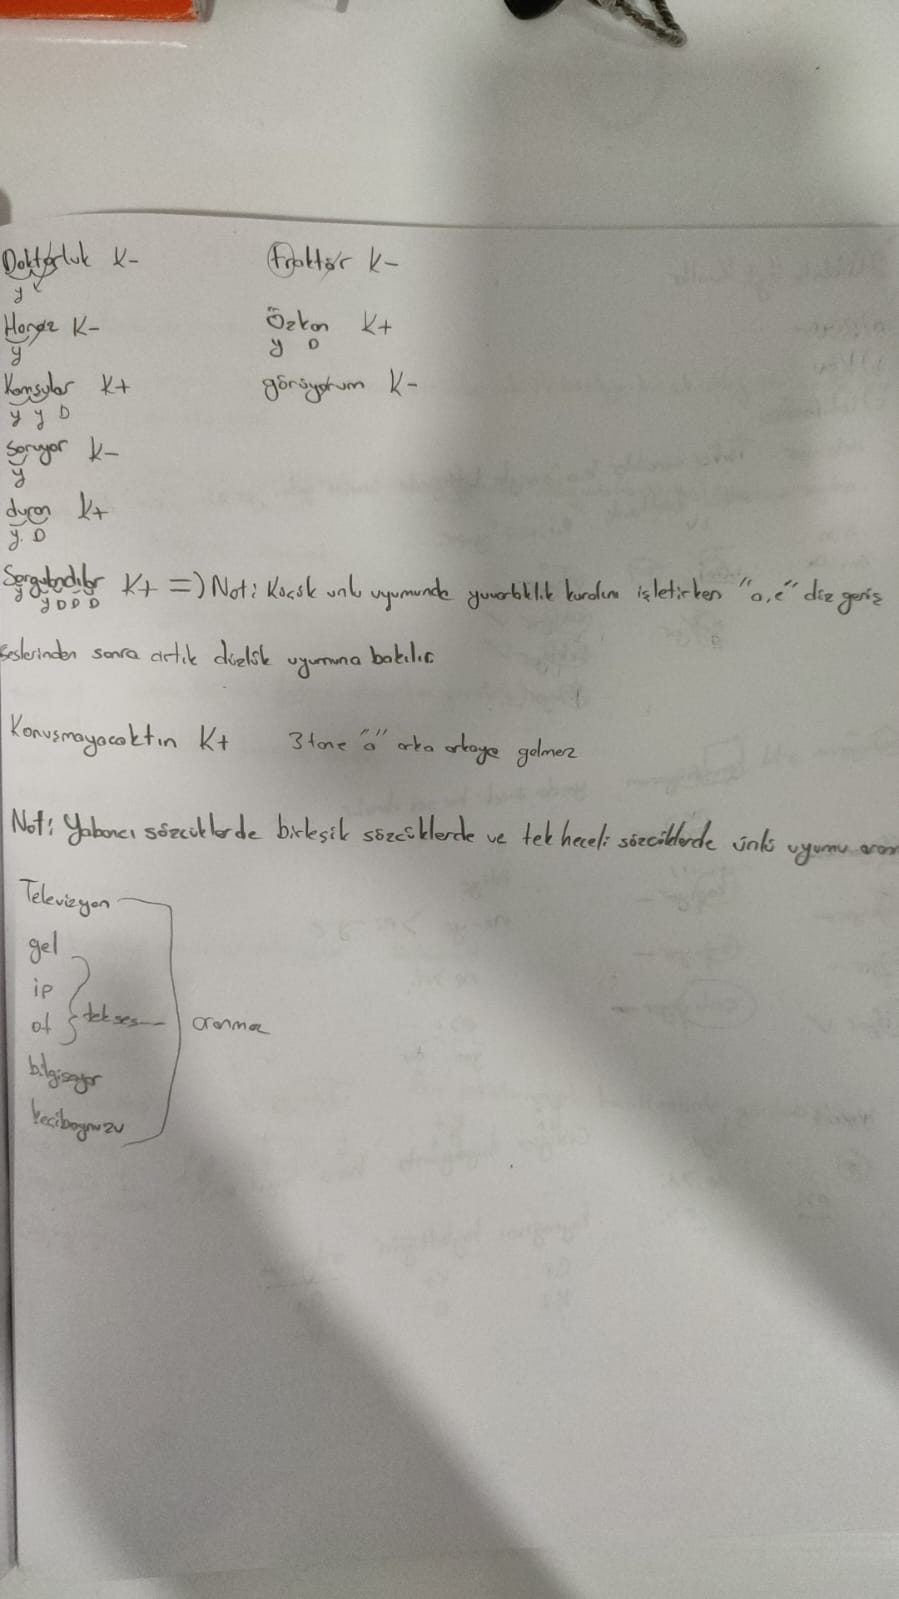 Doktorluk K-
y
Horoz K-
y
Komşular K+
y y D
Soruyor K-
y
duran K+
y. D
Sorgulandılar K+ =) Not: Küçük ünlü uyumunda yuvarlaklık kuralını işletirken "a,e" düz geniş
y y D D D
seslerinden sonra artık düzlük uyumuna bakılır
Konuşmayacaktın K+ 3 tane "a" arka arkaya gelmez
Not: Yabancı sözcüklerde birleşik sözcüklerde ve tek heceli sözcüklerde ünlü uyumu aran
Televizyon
gel
ip
ot
tek ses
aranmaz
bilgisayar
keçiboynuzu
traktör K-
Özkan K+
y D
görüyorum K-